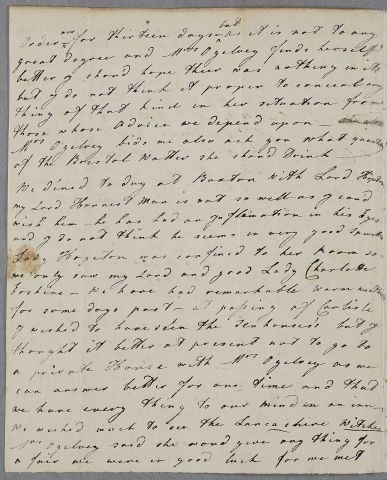 order for thirteen days but as it is not to any
great degree and Mrs Ogelvey finds herself
better I shoud hope theer was nothing in it
but I do not think it proper to conceal any
thing of that kind in her situation from
those whose Advice we depend upon
Mrs Ogelvey bids me also ask you what quantity
of the Bristol Watter she shoud Drink
We dined to day at Buxton with Lord
my Lord Honnest Man is not so well as I coud
wish him he has had an Inflamation in his Eyes
and I do not think he seems in very good
Lady Hopeton was confined to her Room so
we only saw my Lord and good Lady Charlotte
Erskine we have had remarkable warm
for some days past at passing of Carlisle
I wished to have seen the Senhouses but I
thought it better at present not to go to
a private House with Mrs Ogelvey as we
can answer better for our time and that
we have every thing to our mind in an inn
We wished much to see the Lancashire Witches
Mrs Ogelvey said she woud give any thing for
a fair we were in good luck for we met